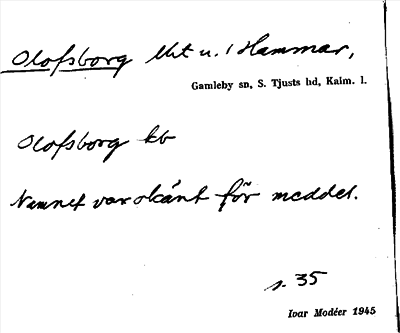 Olofsborg lht u. / Hammar,
Gamleby sn, S. Tjusts hd, Kalm. l.
Olofsborg kb
Namnet var okänt för meddel.
s. 35
Ivar Modéer 1945